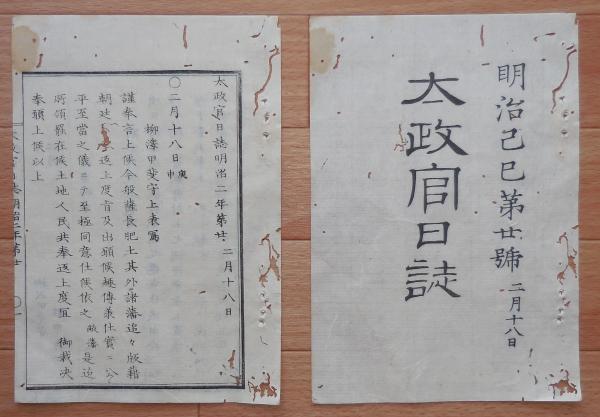 明治己巳第廿號 二月十八日
太政官日誌
太政官日誌明治二年第廿 二月十八日
〇二月十八日庚申
柳澤甲斐守上表寫
謹奉言上候今般薩長肥土其外諸藩追々版籍
朝廷 返上度旨及出願候趣傳兼仕實 公
平至當之儀 至極同意仕候依之 敝藩是迄
所領罷在候土地人民共奉返上度宜 御裁决
奉願上候以上